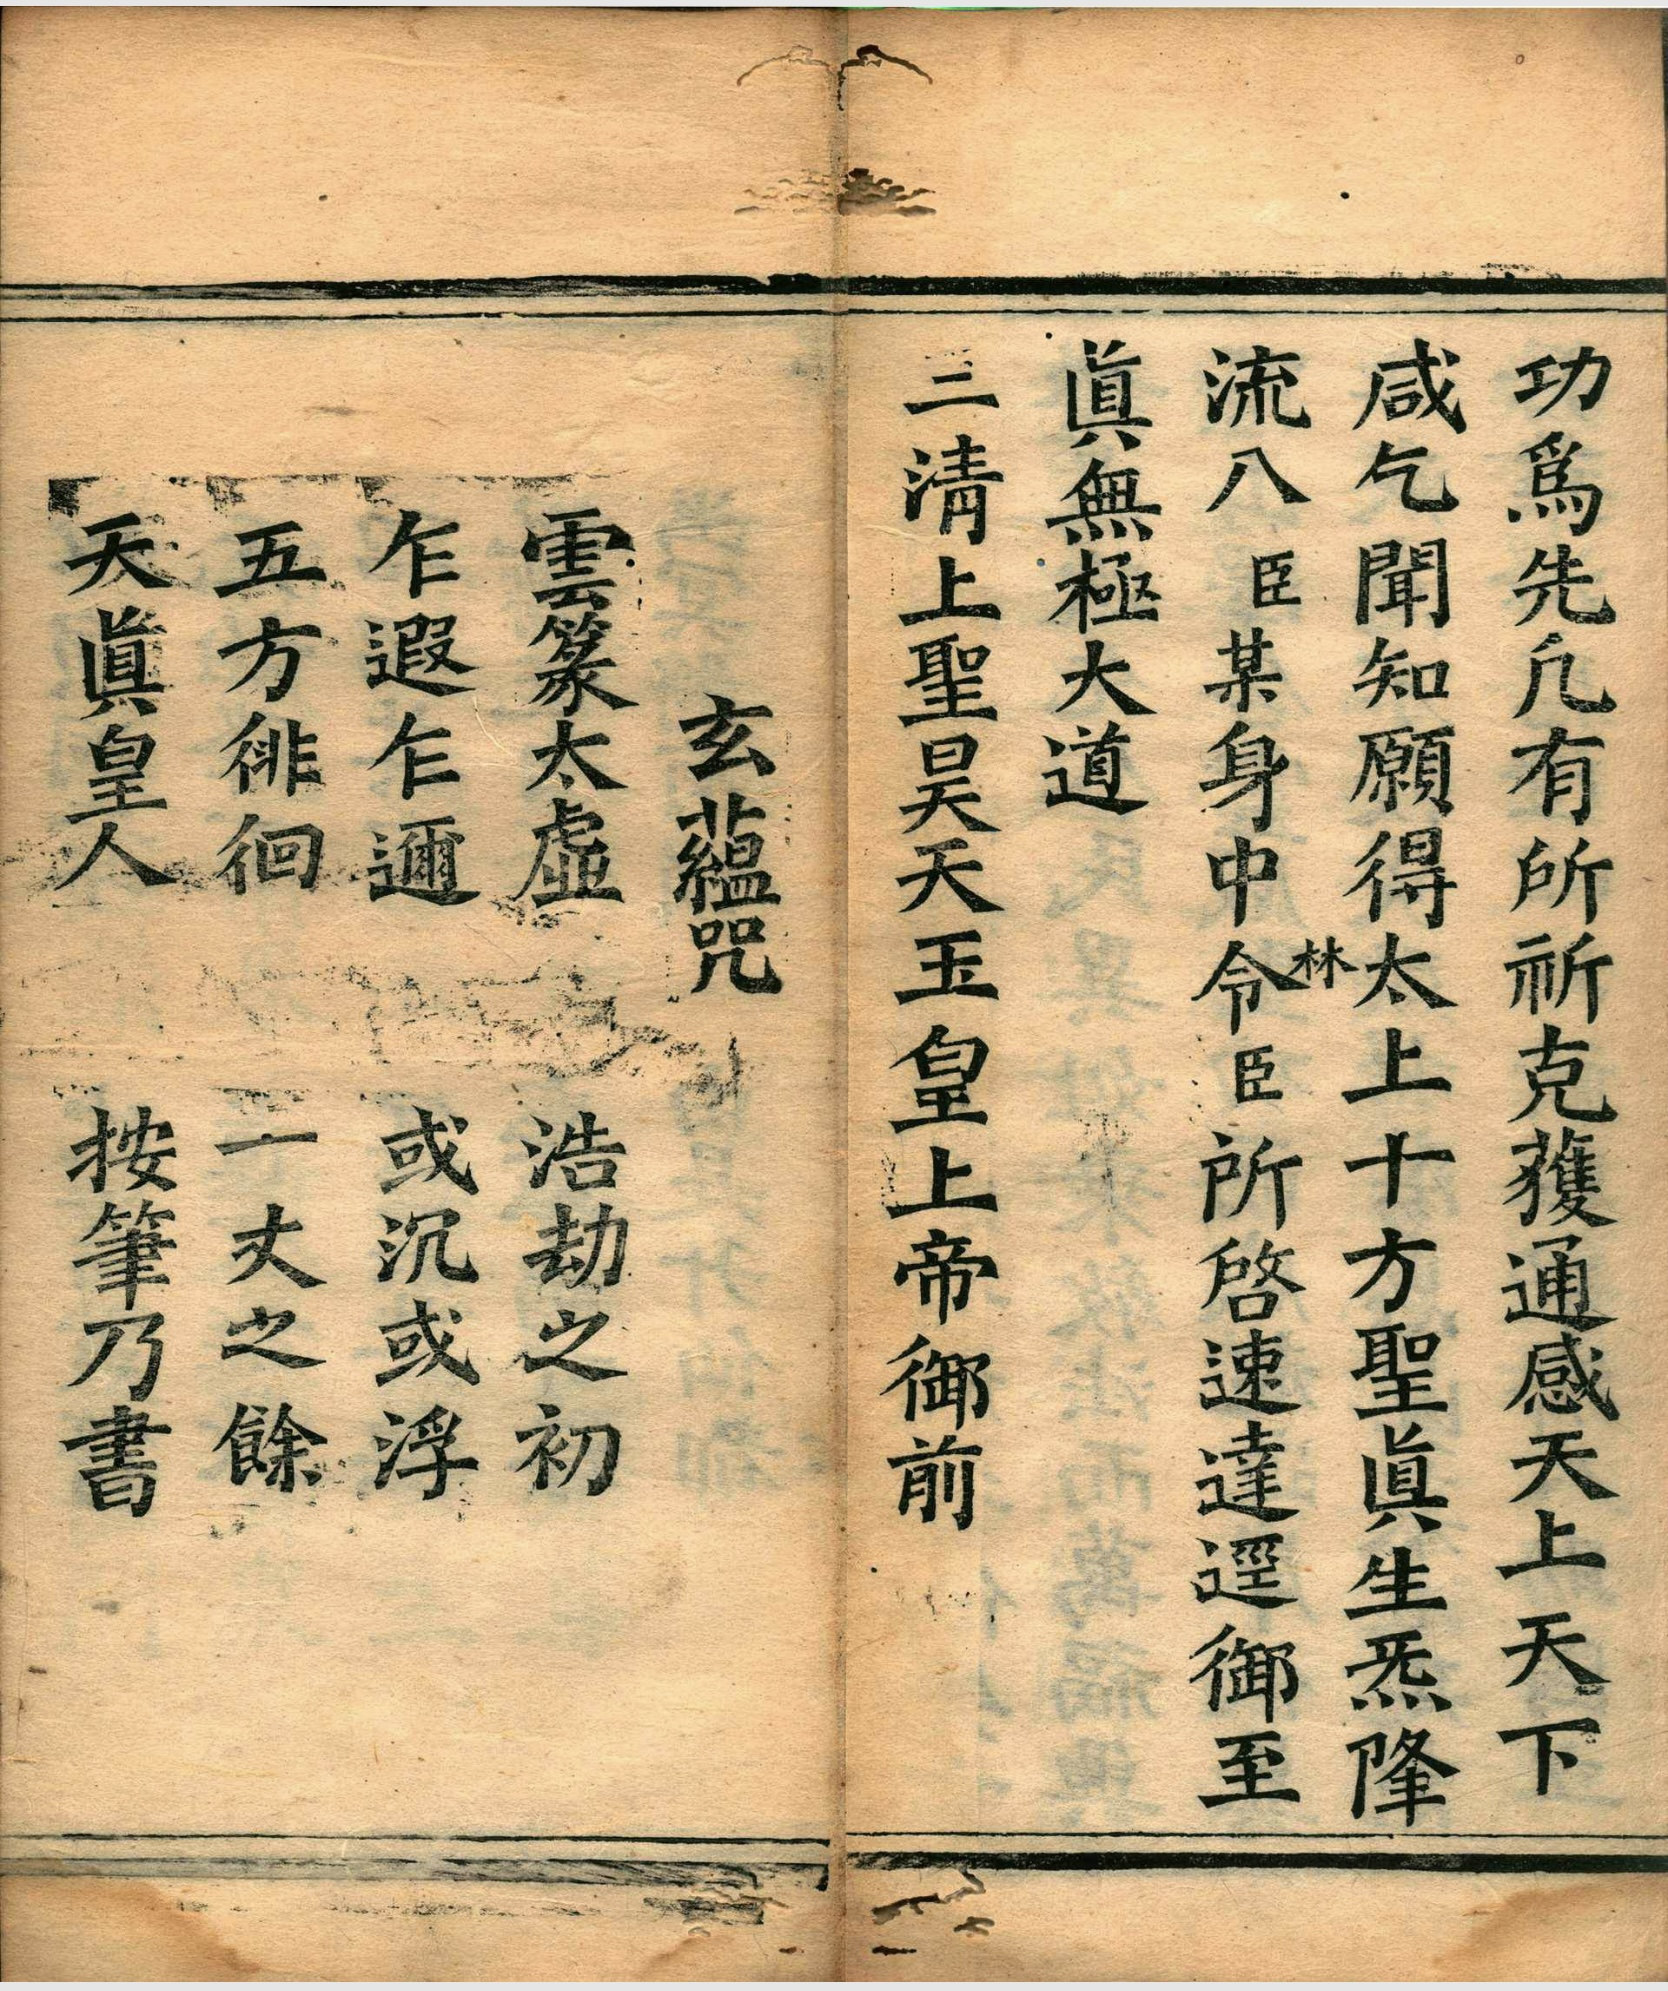 功爲先凡有所祈克獲通感天上天下
咸乞聞知願得太上十方聖眞生炁降
林
流八臣某身中令臣所啓速達逕御至
眞無極大道
三淸上聖昊天玉皇上帝御前
玄蘊咒
雲篆太虛 浩劫之初
乍遐乍邇 或沉或浮
五方徘徊 一丈之餘
天眞皇人 按筆乃書